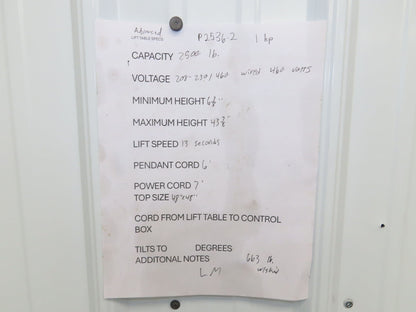 Advanced P2536-2 1 hp
LIFT TABLE SPECS
CAPACITY 2500 lb.
VOLTAGE 208-230/460 wired 460 volts
MINIMUM HEIGHT 6½"
MAXIMUM HEIGHT 43
LIFT SPEED 13 seconds
PENDANT CORD 6'
POWER CORD 7'
TOP SIZE 48"x48"
CORD FROM LIFT TABLE TO CONTROL
BOX
TILTS TO DEGREES
ADDITONAL NOTES 663 lb
L.M